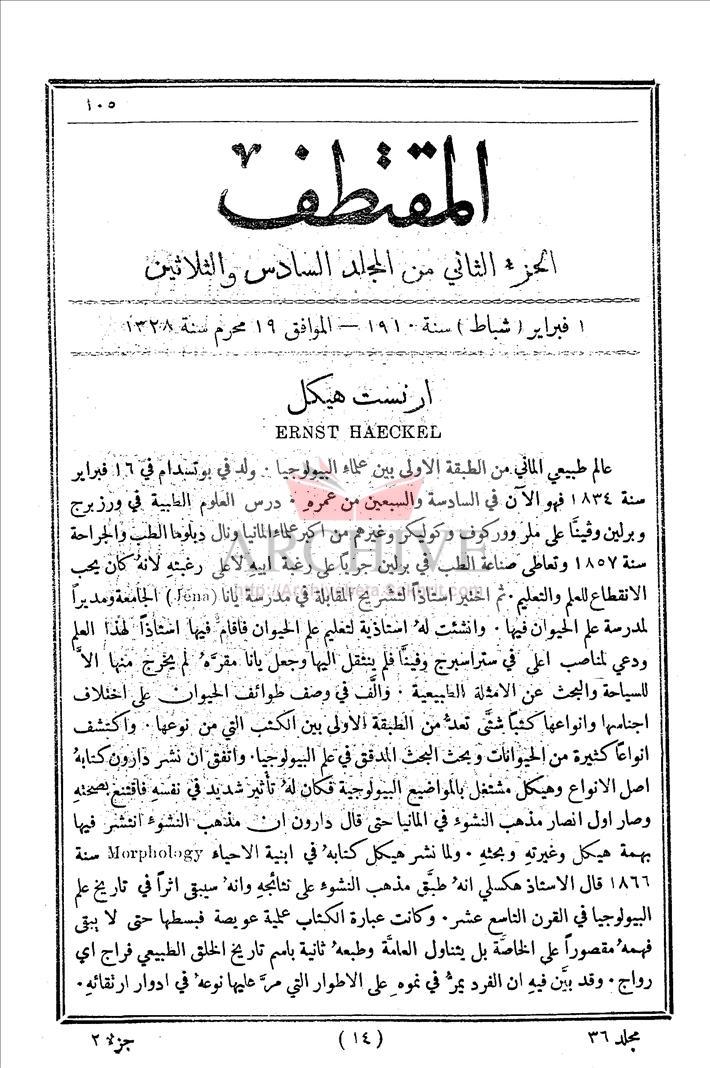 ١٠٥
المقتطف
الجزء الثاني من المجلد السادس والثلاثين
١ فبراير (شباط) سنة ١٩١٠ — الموافق ١٩ محرم سنة ١٣٢٨
ارنست هيكل
ERNST HAECKEL
عالم طبيعي الماني من الطبقة الاولى بين علماء البيولوجيا . ولد في بوتسدام في ١٦ فبراير
سنة ١٨٣٤ فهو الآن في السادسة والسبعين من عمره . درس العلوم الطبية في ورزبرج
وبرلين وڤينّا على ملر وورکوف وكوليكر وغيرهم من اكبر علماء المانيا ونال دبلوما الطب والجراحة
سنة ١٨٥٧ وتعاطى صناعة الطب في برلين جريًا على رغبة ابيه لا على رغبتهِ لانهُ كان يحب
الانقطاع للعلم والتعليم . ثم اختير استاذًا لتشريح المقابلة في مدرسة يانا (Jena) الجامعة ومديرًا
لمدرسة علم الحيوان فيها . وانشئت لهُ استاذية لتعليم علم الحيوان فاقام فيها استاذًا لهذا العلم
ودعي لمناصب اعلى في ستراسبرج وڤينّا فلم ينتقل اليها وجعل يانا مقرَّهُ لم يخرج منها الاَّ
للسياحة والبحث عن الامثلة الطبيعية . والَّف في وصف طوائف الحيوان على اختلاف
اجناسها وانواعها كتبًا شتَّى تعدُّ من الطبقة الاولى بين الكتب التي من نوعها . واكتشف
انواعًا كثيرة من الحيوانات وبحث البحث المدقق في علم البيولوجيا . واتفق ان نشر دارون كتابهُ
اصل الانواع وهيكل مشتغل بالمواضيع البيولوجية فكان لهُ تأثير شديد في نفسهِ فاقتنع بصحتهِ
وصار اول انصار مذهب النشوء في المانيا حتى قال دارون ان مذهب النشوء انتشر فيها
بهمة هيكل وغيرتهِ وبحثهِ . ولما نشر هيكل كتابهُ في ابنية الاحياء Morphology سنة
١٨٦٦ قال الاستاذ هكسلي انهُ طبَّق مذهب النشوء على نتائجهِ وانهُ سيبقى اثرًا في تاريخ علم
البيولوجيا في القرن التاسع عشر . وكانت عبارة الكتاب علمية عويصة فبسطها حتى لا يبقى
فهمهُ مقصورًا على الخاصة بل يتناول العامَّة وطبعهُ ثانية باسم تاريخ الخلق الطبيعي فراج اي
رواج . وقد بيَّن فيهِ ان الفرد يمرُّ في نموهِ على الاطوار التي مرَّ عليها نوعهُ في ادوار ارتقائهِ .
مجلد ٣٦
(١٤)
جزء ٢
ARCHIVE